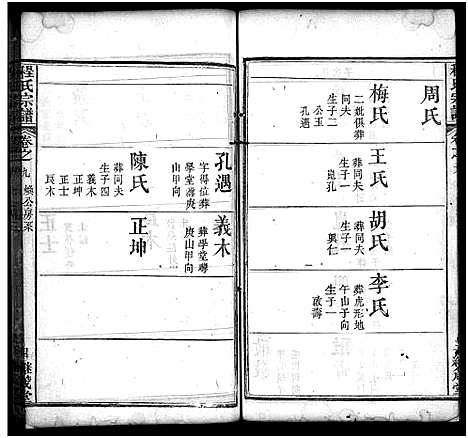 周氏
梅氏
二妣俱葬
同夫
生子二
公玉
孔遇
王氏
葬同夫
生子一
胡氏
葬同夫
生子一
興仁
李氏
葬虎形地
午山子向
生子一
啟壽
孔遇
字得位葬
學堂灣庚
山甲向
義木
葬學堂灣
庚山甲向
陳氏
葬同夫
生子四
義木
正坤
正士
良木
正坤
程氏宗譜
卷之九
煥公房系